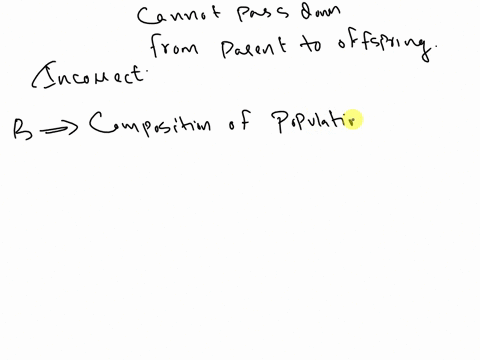 Cannot pass down
from parent to offspring.
Incorrect.
B ⇒ Composition of Populatin